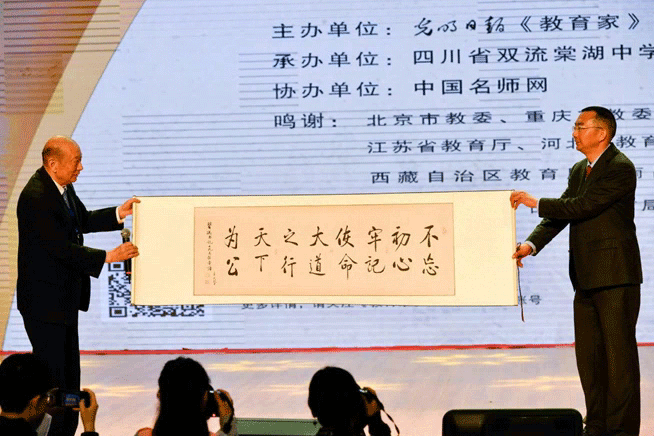 主办单位：光明日报《教育家》
承办单位：四川省双流棠湖中学
协办单位：中国名师网
鸣谢：北京市教委、重庆 教委
江苏省教育厅、河北 教育
西藏自治区教育
局
不忘
初心
牢记
使命
大道
之行
天下
为公
更多详情，请关注 账号